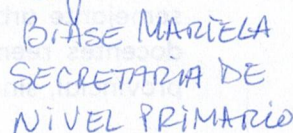 BIASE MARIELA
SECRETARIA DE
NIVEL PRIMARIO